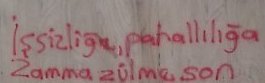 İşsizliğe, pahallılığa
Zamma zülme son